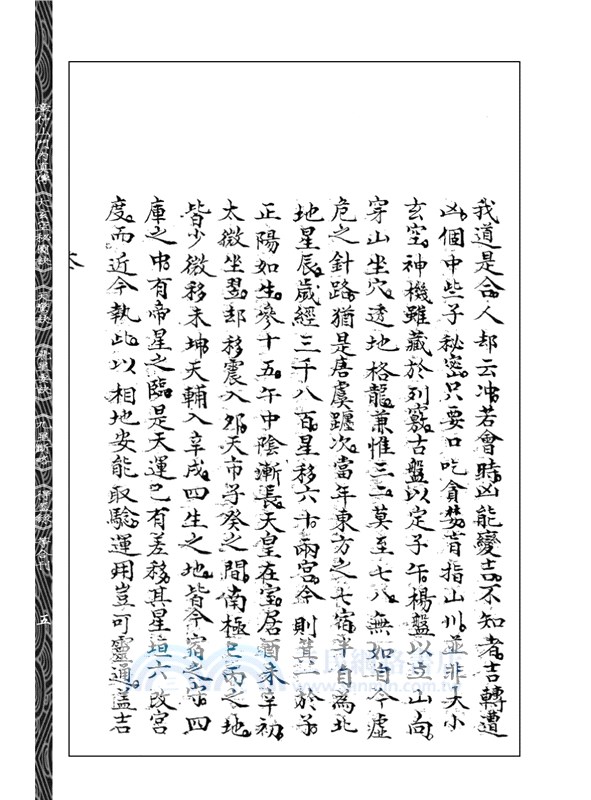 我道是合。人却云冲。若會時。凶能變吉。不知者。吉轉遭
凶。個中些子秘密。只要口吃貪婪。肯指山川。並非大小
玄空。神機雖藏於列竅。古盤以定子午。楊盤以立山向。
穿山坐穴。透地格龍。兼惟三二。莫至七八。無如自今虛
危之針路。猶是唐虞躔次。當年東方之七宿。半自為北
地星辰。歲經三千八百。星移六十兩宮。今則箕二於子。
正陽如生。參十五午中陰漸長。天皇在室。居酉未辛初。
太微坐翌。却移震入卯。天市子癸之間。南極巳丙之地。
皆少微移未坤天輔入辛戌。四生之地。皆今宿之守。四
庫之中。有帝星之臨。是天運已有差移。其星垣六改宮
度。而近今執此。以相地安能取驗。運用豈可靈通。蓋吉
五